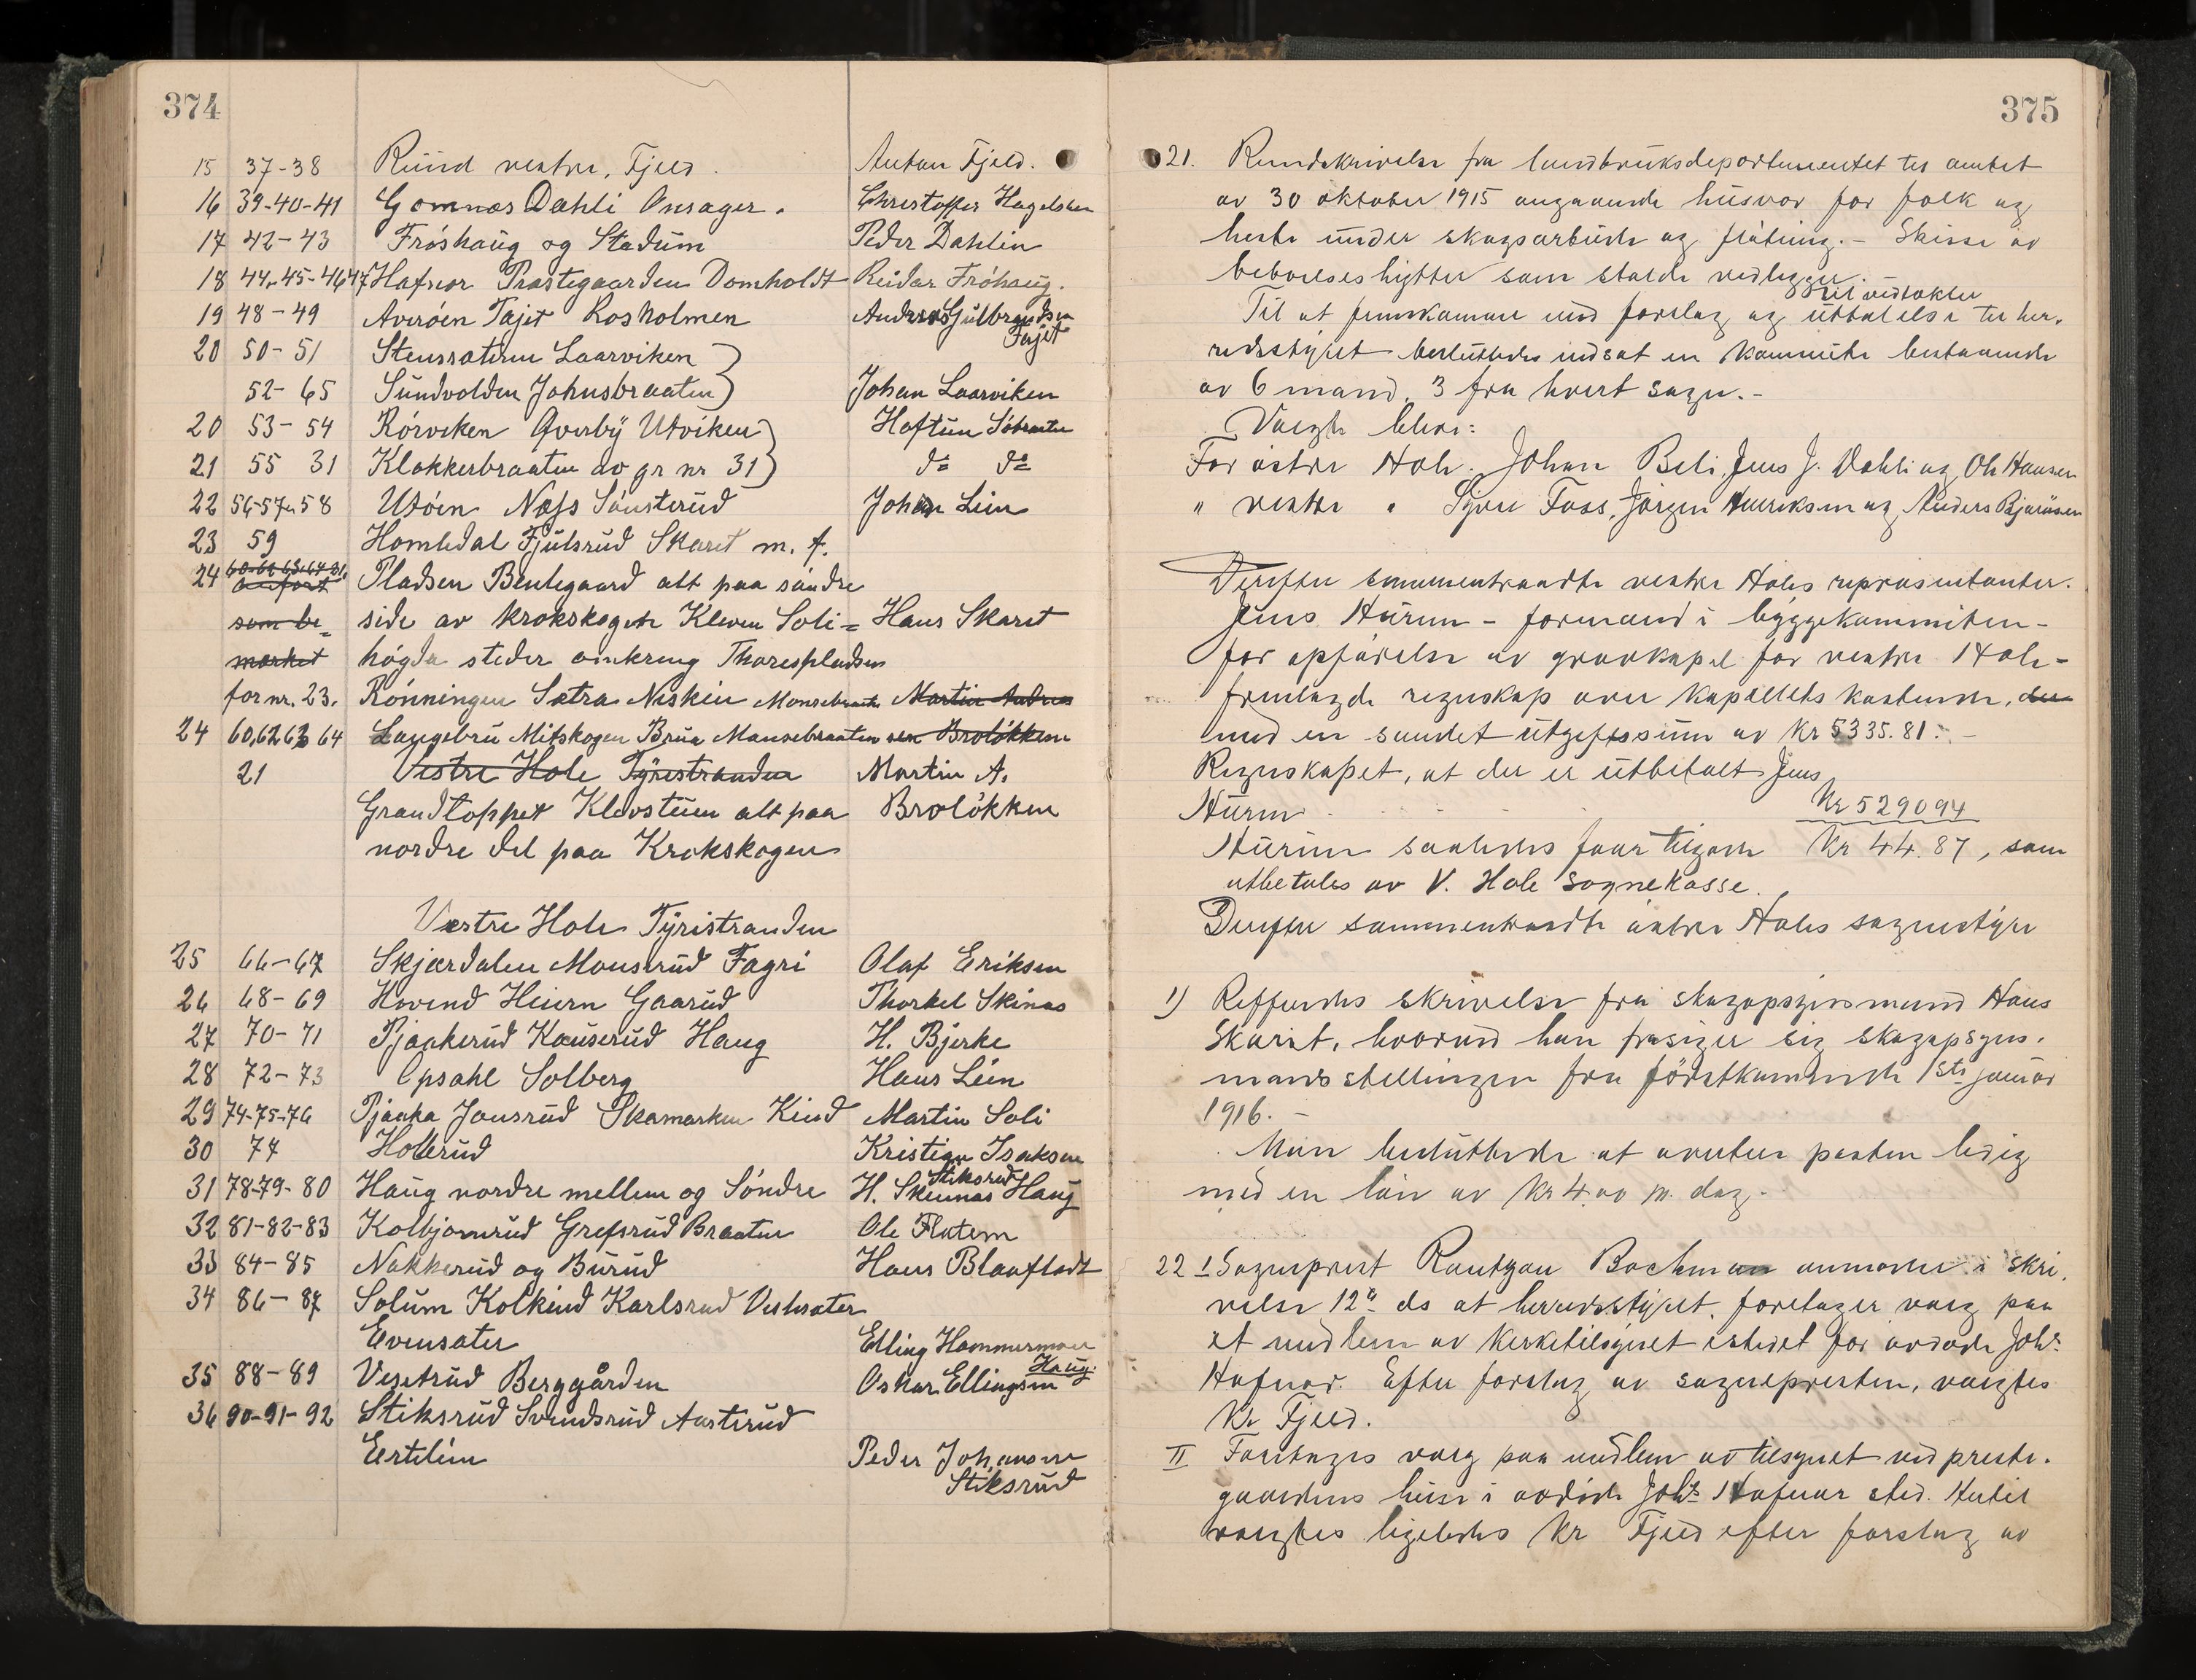 374
15 37-38 Rund vestre, Fjeld. Anton Fjeld.
16 39-40-41 Gomnæs Dahli Onsager. Christoffer Hagelsten
17 42-43 Fróshaug og Stadum Peder Dahlin
18 44-45-46 47 Hafnor Præstegaarden Domholdt Reidar Fróhaug.
19 48-49 Averóen Fajet Rosholmen Anders Gulbrandsen Fajet
20 50-51 Stenssæteren Laarviken
52-65 Sundvolden Johnsbraaten Johan Laarviken
20 53-54 Rórviken Averby Utviken Haftun Sóbraaten
21 55 31 Klokkerbraaten av gr nr 31 do do
22 56-57-58 Utóen Næss Sónsterud Johan Lien
23 59 Homledal Fjulsrud Skaret m. f.
24 60-62-63-64-21. anfort Pladsen Bentegaard alt paa sóndre
som be= side av krokskogen Kleven Soli= Hans Skaret
mærket hógda steder omkring Thorespladsen
for nr. 23. Rónningen Sætra Niskin Monsebraaten Martin Andreas
24 60,62 63 64 Langebru Mitskogen Brua Mansebraaten sen Brolókken
21 Vestre Hole Tyristranden Martin A.
Grandtoppet Klevstuen alt paa Brolókken
nordre del paa Krokskogen
Vestre Hole Tyristranden
25 66-67 Skjærdalen Monserud Fagri Olaf Eriksen
26 68-69 Hovind Heiern Gaarud Thorkel Skinæs
27 70-71 Pjaakerud Kauserud Haug H. Bjerke
28 72-73 Opsahl Solberg Hans Lien
29 74-75-76 Pjaaka Jonsrud Skamarken Kind Martin Soli
30 77 Hollerud Kristian Isaksen Stiksrud
31 78-79-80 Haug nordre mellem og Sóndre H. Skinnæs Haug
32 81-82-83 Kolbjornrud Grefsrud Braaten Ole Flatern
33 84-85 Nakkerud og Burud Hans Blaafladt
34 86-87 Solum Kolkind Karlsrud Vestsæter
Evensæter Elling Hammermoen
35 88-89 Vesetrud Berggården Oskar Ellingsen Haug.
36 90-91-92 Stiksrud Svendsrud Aasterud
Ertelien Peder Johansen
Stiksrud
375
21. Rundskrivelse fra landbruksdepartementet til amtet
av 30 oktober 1915 angaaende husvær for folk og
heste under skogsarbeide og flótning. - Skisse av
beboelseshytter som stalde vedlegger.
til vedtekter
Til at fremkomme med forslag og uttalelse til her-
redsstyret besluttedes indsat en kommite bestaaende
av 6 mand, 3 fra hvert sogn. -
Valgte blev:
For óstre Hole. Johan Beli, Jens J. Dahli og Ole Hansen
" vestre " Syver Foss, Jórgen Henriksen og Anders Bjørnsen
Derefter sammentraadte vestre Holes repræsentanter.
Jens Hurum - formand i byggekommiteen -
for opfórelse av gravkapel for vestre Hole -
fremlagde regnskap over kapellets kostende, der
med en samlet utgiftssum av kr 5335.81. -
Regnskapet, at der er utbetalt Jens
Hurum kr 529094
Hurum saaledes faar tilgode kr 44.87, som
utbetales av V. Hole sognekasse.
Derefter sammentraadte óstre Holes sognestyre
1) Refferedes skrivelse fra skogopsynsmand Hans
Skaret, hvorved han frasiger sig skogopsyns-
mandsstillingen fra fórstkommende 1ste januar
1916. -
Man besluttede at avertere posten ledig
med en lón av kr 4.00 pr. dag. -
22 I Sogneprest Rautzau Bachman anmoder i skri-
velse 12te ds at herredsstyret foretager valg paa
et medlem av kerketilsynet istedet for avdóde Johs
Hafnor. Efter forslag av sognepresten, valgtes
Kr Fjeld.
II Foretages valg paa medlem av tilsynet ved preste-
gaardens huse i avdóde Johs Hafnor sted. Hertil
valgtes ligeledes Kr Fjeld efter forslag av